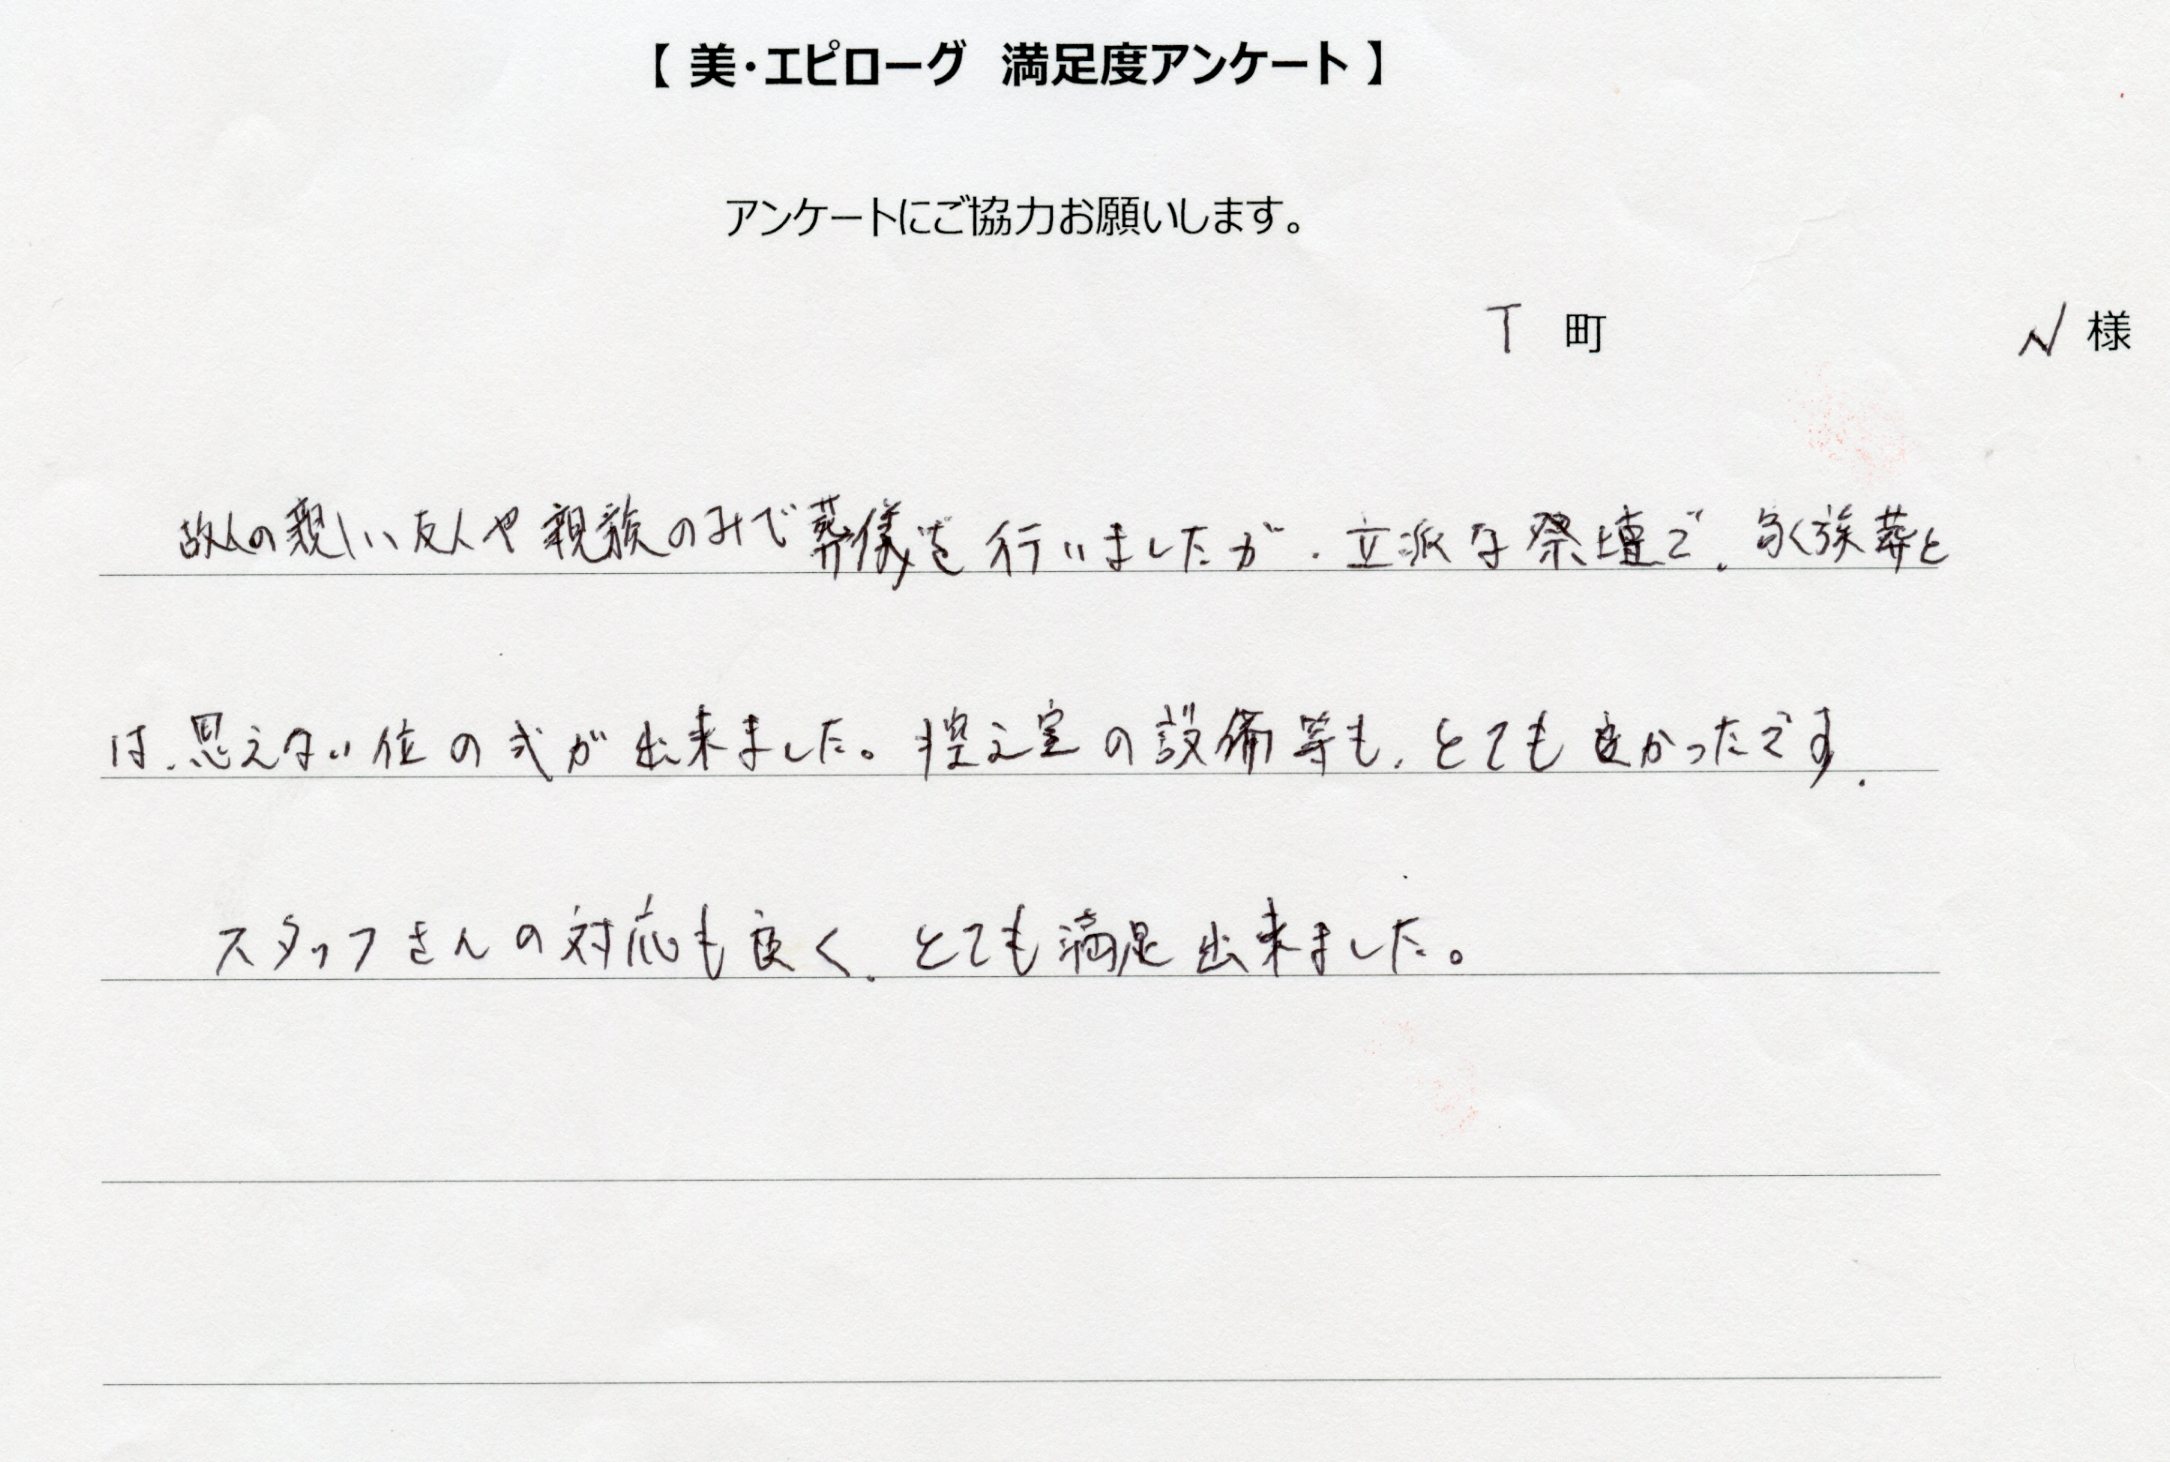 【 美・エピローグ　満足度アンケート 】
アンケートにご協力お願いします。
T 町　N 様
故人の親しい友人や親族のみで葬儀を行いましたが、立派な祭壇で、家族葬と
は、思えない位の式が出来ました。控え室の設備等も、とても良かったです。
スタッフさんの対応も良く、とても満足出来ました。